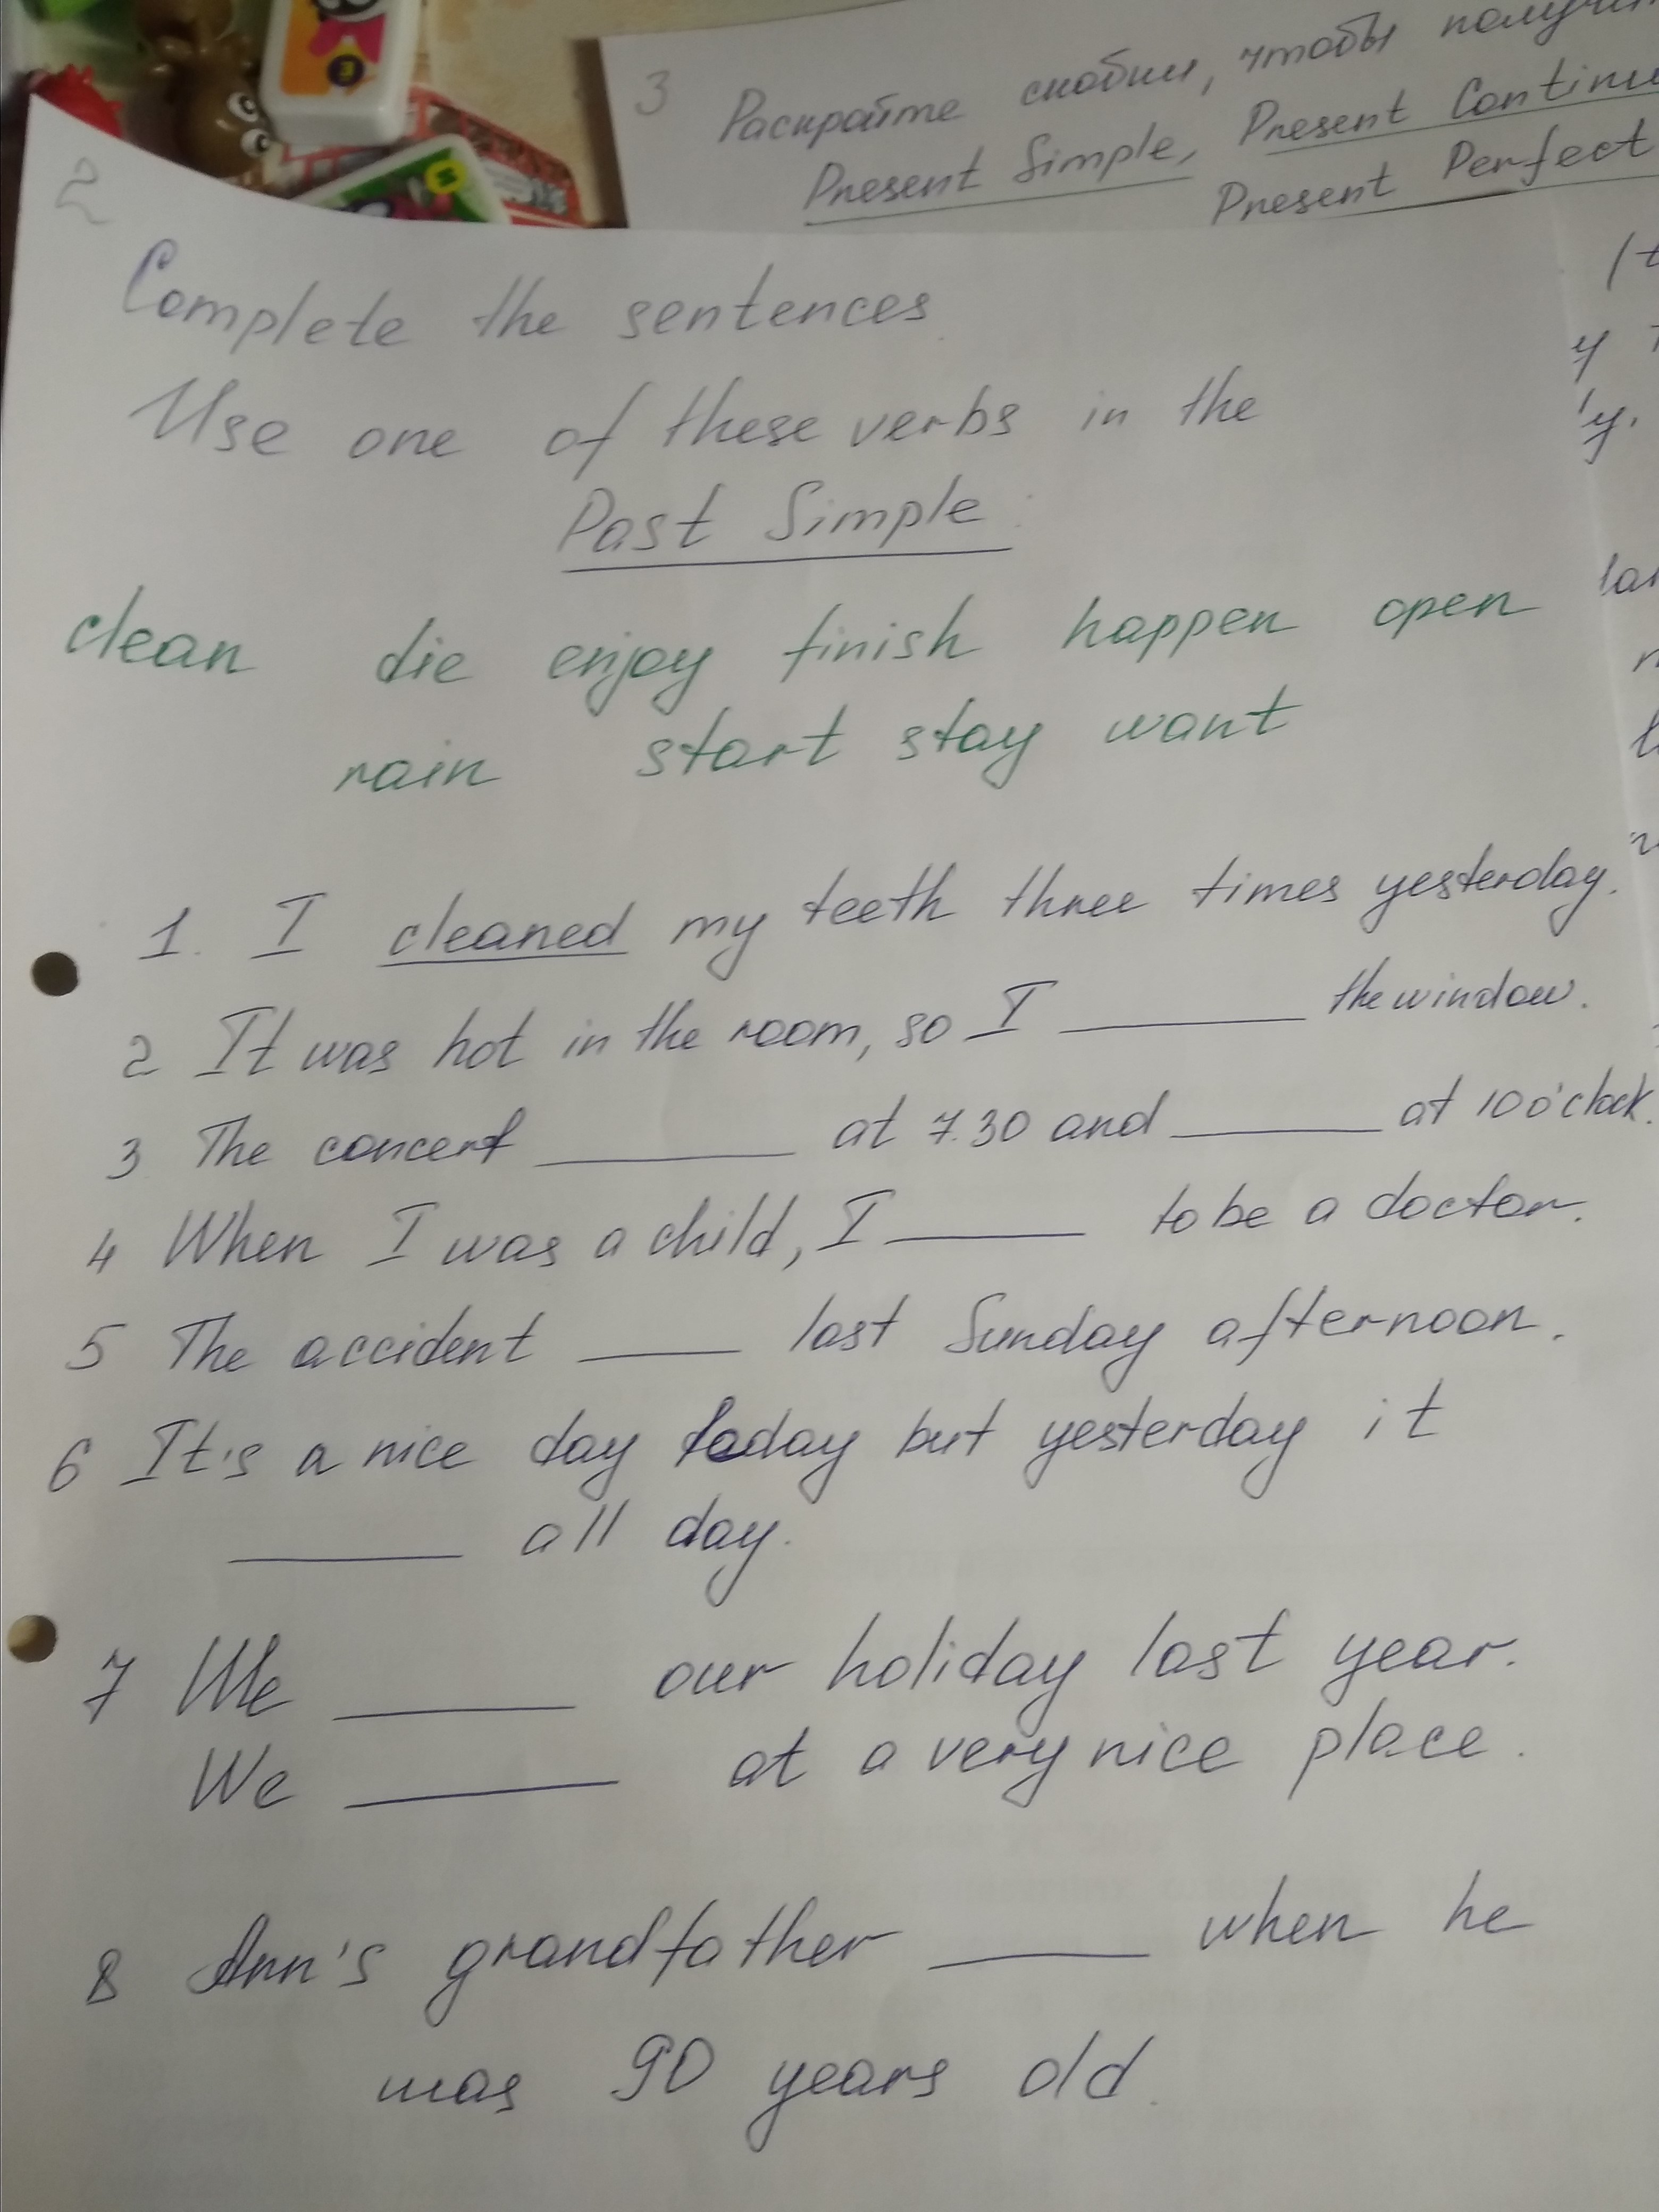 3 Раскройте скобки, чтобы
Present Simple, Present
Present Perfect
2
Complete the sentences
Use one of these verbs in the
Past Simple:
clean die enjoy finish happen open
rain start stay want
1. I cleaned my teeth three times yesterday.
2 It was hot in the room, so I ______ the window.
3 The concert ______ at 7.30 and ______ at 10 o'clock.
4 When I was a child, I ______ to be a doctor.
5 The accident ______ last Sunday afternoon.
6 It's a nice day today but yesterday it
______ all day.
7 We ______ our holiday last year.
We ______ at a very nice place.
8 Ann's grandfather ______ when he
was 90 years old.